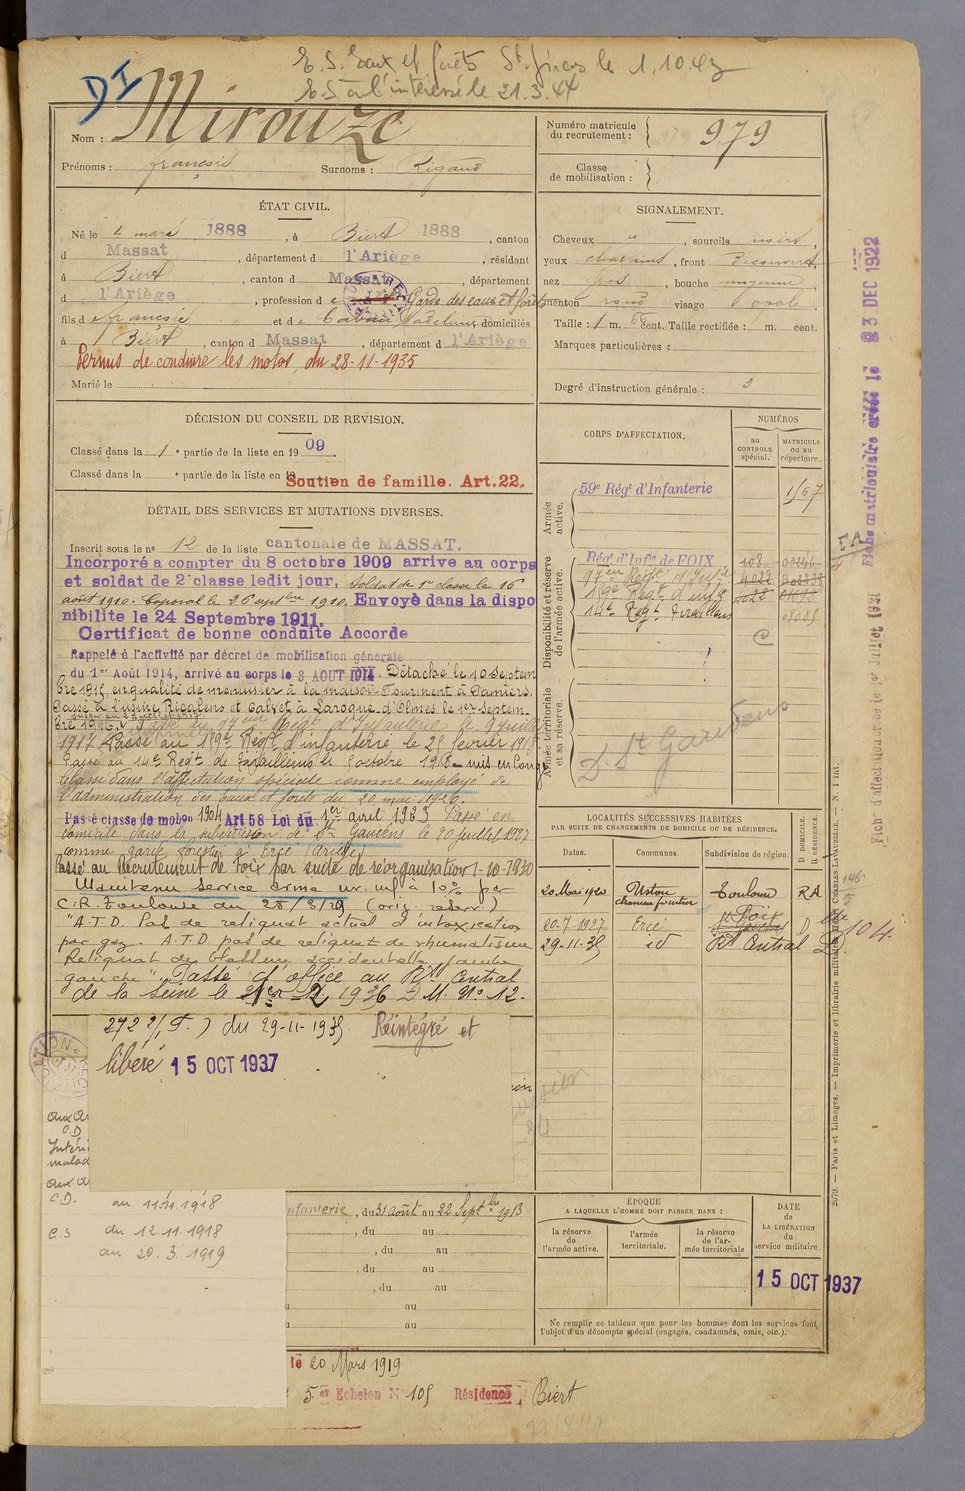 E.S. Eaux et forêts St Girons le 1.10.43
E.S. à l'intéressé le 21.3.44
DI
Nom : Mirouze
Prénoms : françois Surnoms : Rigaud
Numéro matricule du recrutement : 979
Classe de mobilisation :
ÉTAT CIVIL.
Né le 4 mars 1888, à Biert 1888, canton
d Massat, département d l'Ariège, résidant
à Biert, canton d Massat, département
d l'Ariège, profession d Garde des eaux et forêts
fils d françois et d Madeleine domiciliés
à Biert, canton d Massat, département d l'Ariège
Permis de conduire les motos, du 28-11-1935
Marié le
SIGNALEMENT.
Cheveux, sourcils noirs,
yeux chatains, front Découvert,
nez, bouche moyenne,
menton rond visage ovale
Taille : 1 m. 66 cent. Taille rectifiée : m. cent.
Marques particulières :
Degré d'instruction générale : 3
DÉCISION DU CONSEIL DE REVISION.
Classé dans la 1e partie de la liste en 1909.
Classé dans la e partie de la liste en 19
Soutien de famille. Art.22.
DÉTAIL DES SERVICES ET MUTATIONS DIVERSES.
Inscrit sous le no 12 de la liste cantonale de MASSAT.
Incorporé a compter du 8 octobre 1909 arrive au corps
et soldat de 2e classe ledit jour, Soldat de 1re classe le 16
août 1910. Caporal le 26 septbre 1910. Envoyé dans la dispo
nibilite le 24 Septembre 1911.
Certificat de bonne conduite Accorde
Rappelé à l'activité par décret de mobilisation générale
du 1er Août 1914, arrivé au corps le 3 AOUT 1914. Détaché le 10 Septem
bre 1915 en qualité de menuisier à la maison Tourment à Pamiers.
Passé à l'usine Ricalens et Calvet à Laroque d'Olmes le 1er Septem-
bre 1916. Passé au 97eme Régt d'Infanterie le 9 juillet
1917 Passé au 159e Régt d'infanterie le 25 fevrier 1918
Passé au 14e Regt de tirailleurs le 5 octobre 1918 - mis en Congé
Classé dans l'affectation spéciale comme employé de
l'administration des Eaux et forêts du 20 mai 1920.
Passé classe de mobon 1904 Art 58 Loi du 1er avril 1923 Passé en
domicile dans la subdivision de St Gaudens le 20 juillet 1927
comme garde forestier à Ercé (Ariège)
Passé au Recrutement de Foix par suite de réorganisation 1-10-1930
Maintenu service armé inv. inf à 10% par
C.R. Toulouse du 28/3/29 (orig. réserv.)
"A.T.D. Pas de reliquat actuel d'intoxication
par gaz - A.T.D. pas de reliquat de rhumatisme
Reliquat de blessure accidentelle jambe
gauche" Passé d'office au Rt Central
de la Seine le 1936 D.M. No 12.
2722/(T.) du 29-11-1935 Réintégré et
libéré 15 OCT 1937
CORPS D'AFFECTATION.
NUMÉROS
au CONTROLE spécial.
MATRICULE ou au répertoire.
Armée active.
59e Régt d'Infanterie 1/67
Disponibilité et réserve de l'armée active.
Régt d'Infie de FOIX 108
97eme Regt d'Infie 4022
159e Regt d'infie
14e Regt Tirailleurs
C
Armée territoriale et sa réserve.
D. St Gaudens
Fiche matriculaire créée le 23 DEC 1922
LOCALITÉS SUCCESSIVES HABITÉES
PAR SUITE DE CHANGEMENTS DE DOMICILE OU DE RÉSIDENCE.
Dates. Communes. Subdivision de région. D. DOMICILE. R. RÉSIDENCE.
20 Mai 1920 Ustou Toulouse RA
20-7-1927 Ercé D
29-11-35 id Rt Central D.
104.
2079. — Paris et Limoges. — Imprimerie et librairie militaires Henri CHARLES-LAVAUZELLE. — N. 1 int.
C.D.
au 11.11.1918
C.S du 12.11.1918
au 20.3.1919
nfanterie, du 31 août au 22 Septbre 1913
, du au
, du au
, du au
, du au
au
au
ÉPOQUE
A LAQUELLE L'HOMME DOIT PASSER DANS :
la réserve de l'armée active.
l'armée territoriale.
la réserve de l'armée territoriale.
DATE de LA LIBÉRATION du service militaire.
15 OCT 1937
Ne remplir ce tableau que pour les hommes dont les services font
l'objet d'un décompte spécial (engagés, condamnés, omis, etc.).
le 20 Mars 1919
5e Echelon No 105 Résidence Biert